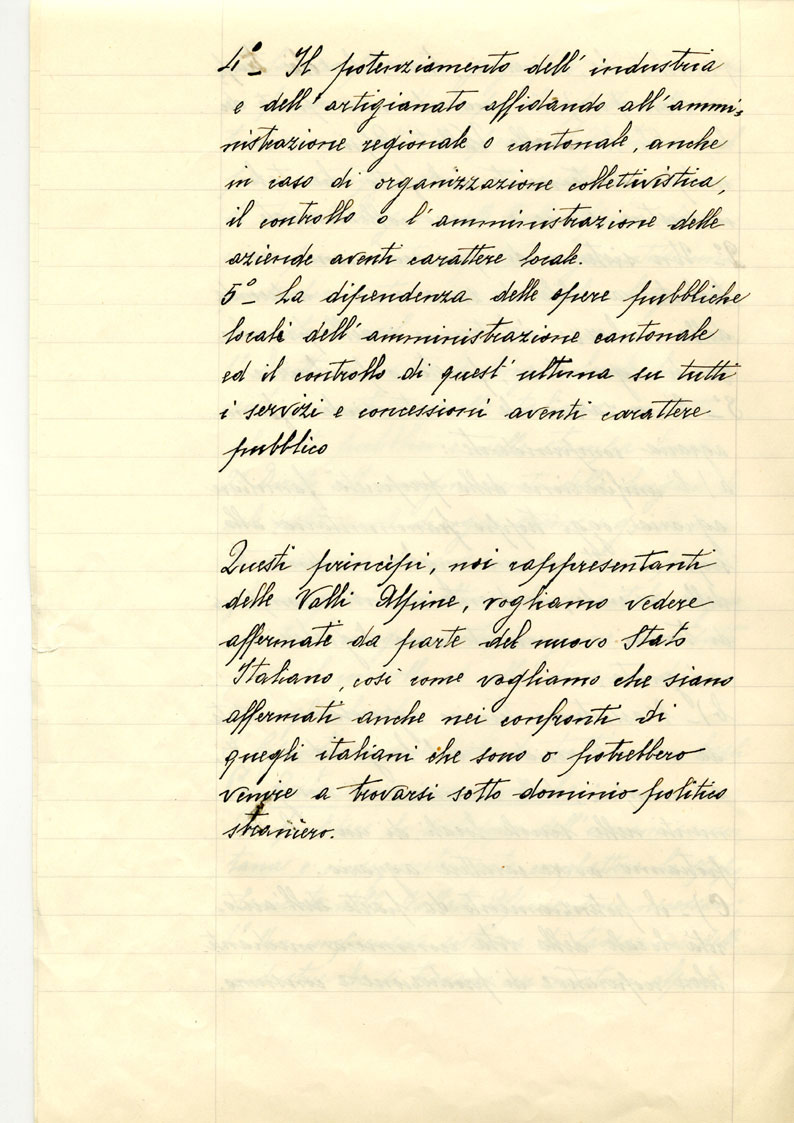 4º_ Il potenziamento dell'industria
e dell'artigianato affidando all'ammi-
nistrazione regionale o cantonale, anche
in caso di organizzazione collettivistica,
il controllo o l'amministrazione delle
aziende aventi carattere locale.
5º_ La dipendenza delle opere pubbliche
locali dell'amministrazione cantonale
ed il controllo di quest'ultima su tutti
i servizi e concessioni aventi carattere
pubblico
Questi princìpi, noi rappresentanti
delle Valli Alpine, vogliamo vedere
affermati da parte del nuovo Stato
Italiano, così come vogliamo che siano
affermati anche nei confronti di
quegli italiani che sono o potrebbero
venire a trovarsi sotto dominio politico
straniero.